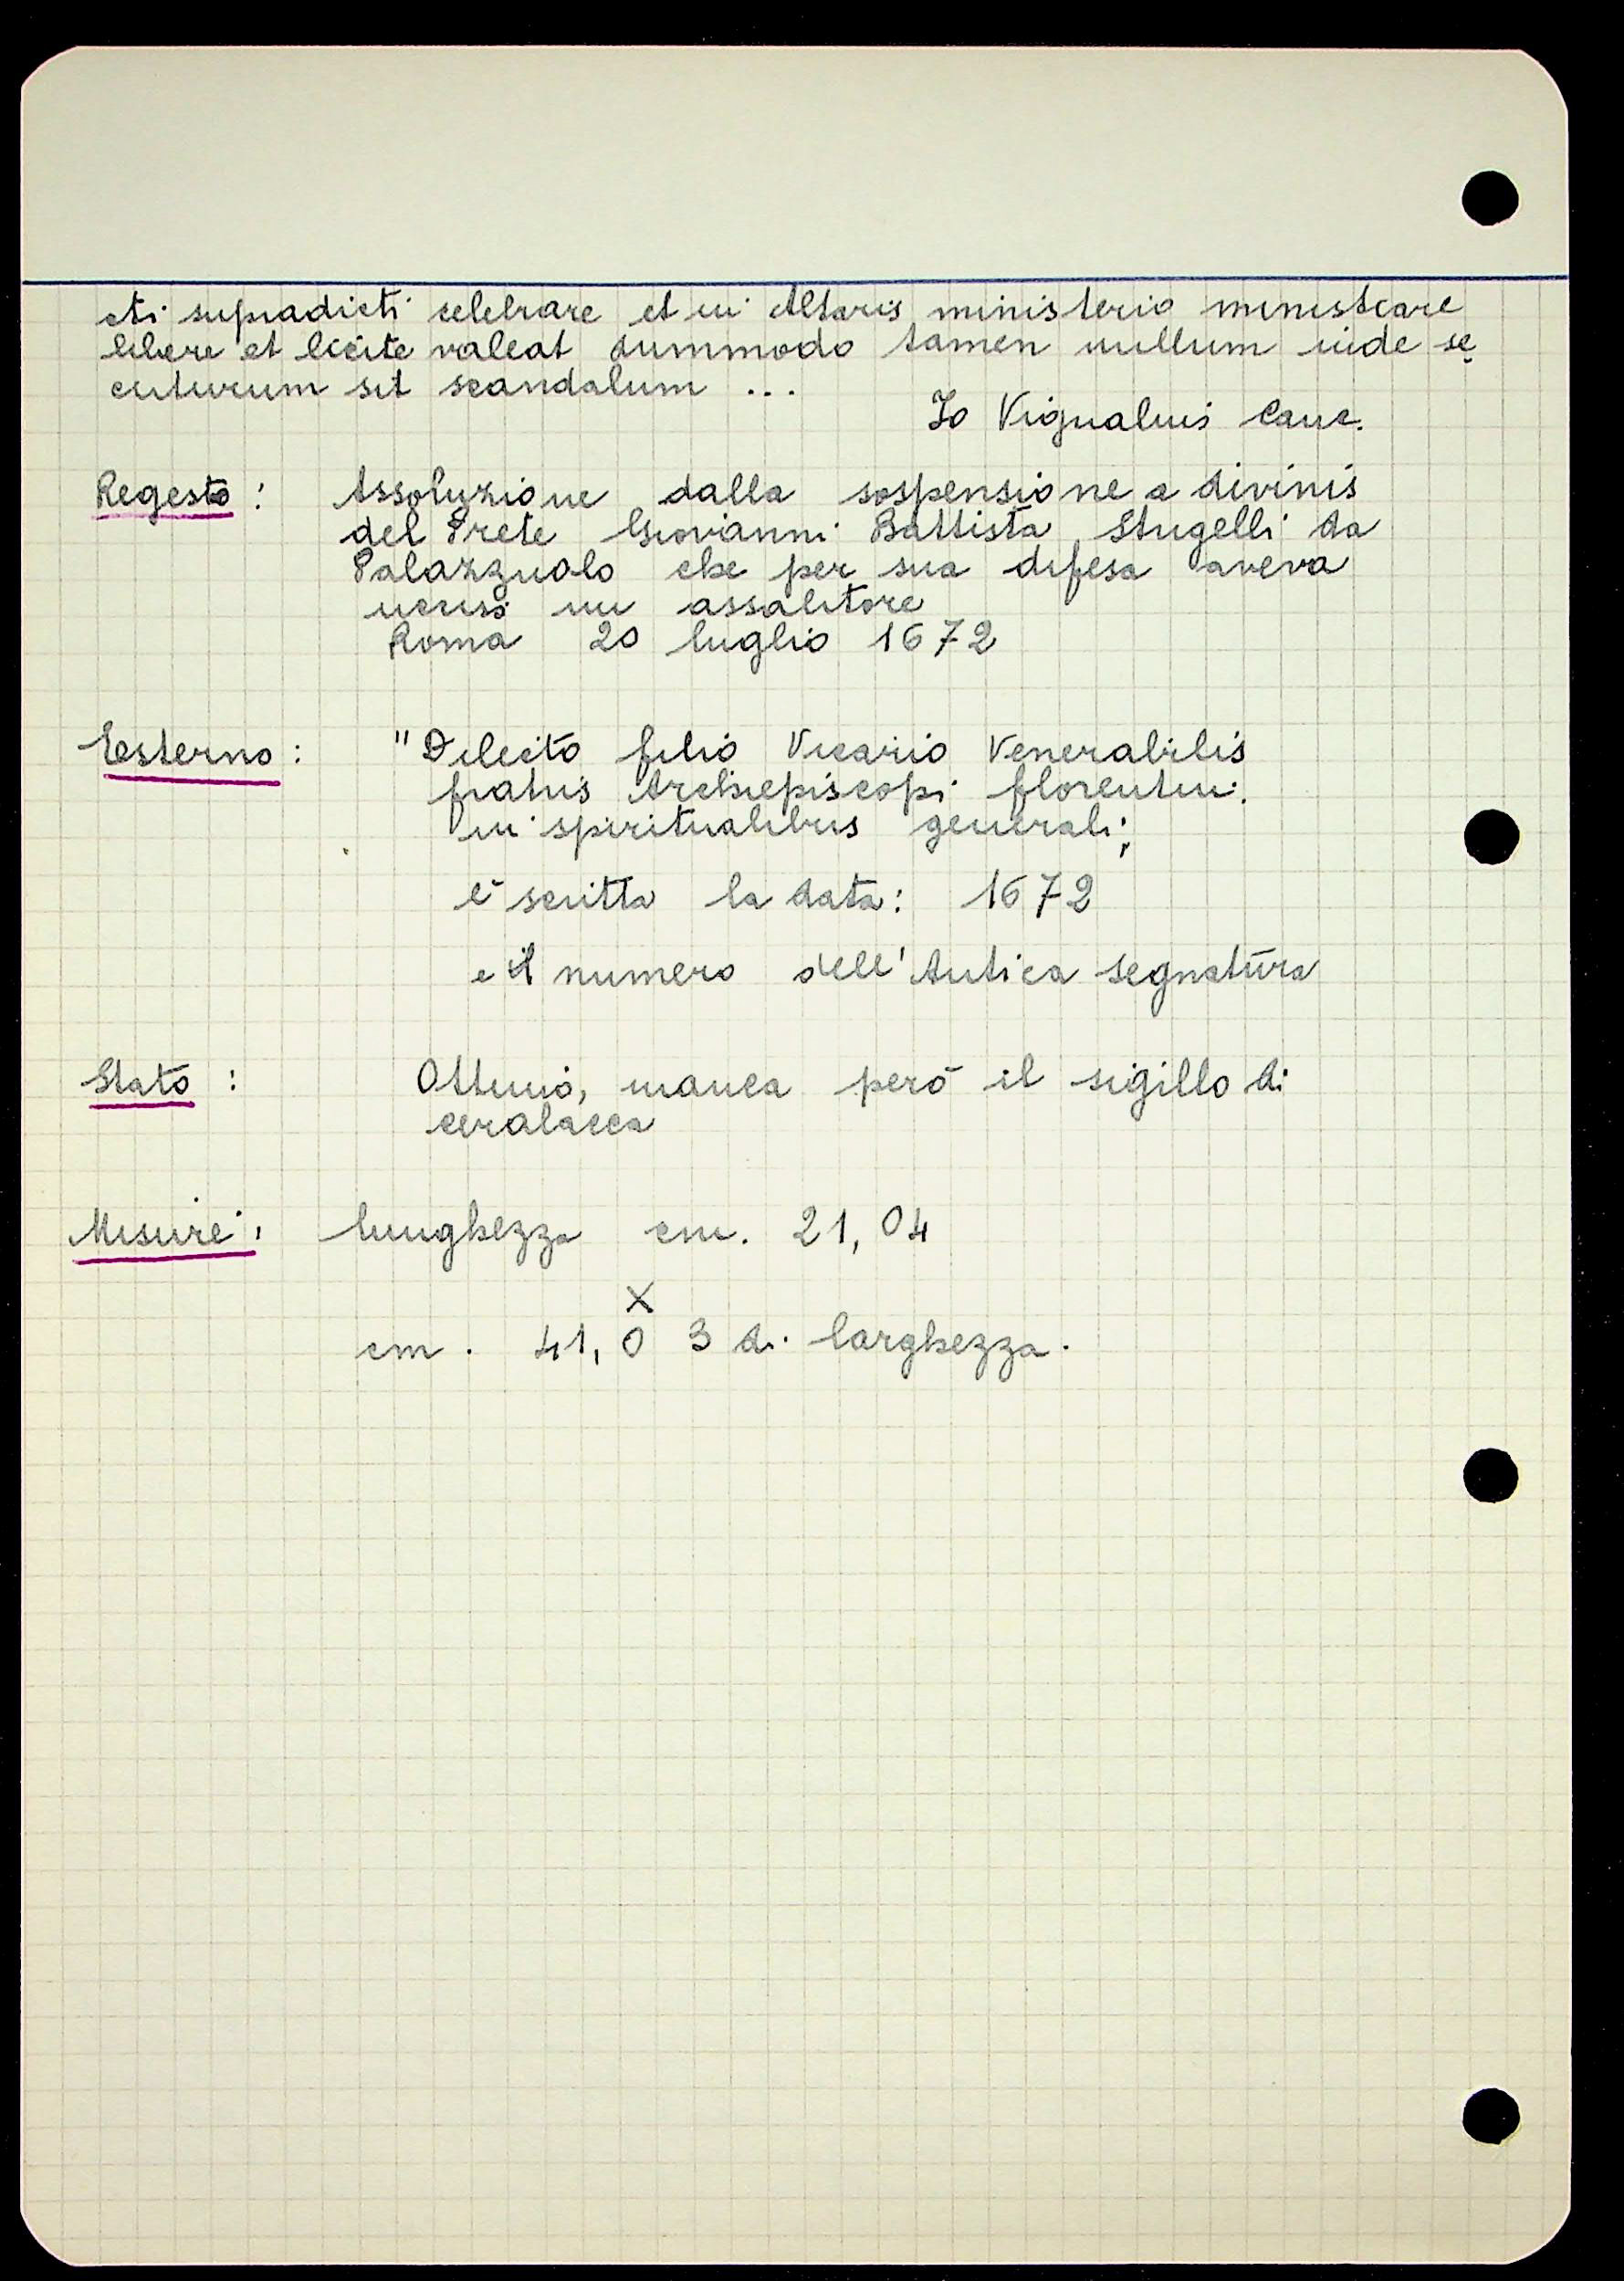 cti supradicti celebrare et in Altaris ministerio ministrare
libere et licite valeat dummodo tamen nullum inde se
cuturum sit scandalum ...
Io Vignalinis Canc.
Regesto : Assoluzione dalla sospensione a divinis
del Prete Giovanni Battista Stugelli da
Palazzuolo che per sua difesa aveva
ucciso un assalitore
Roma 20 luglio 1672
Esterno : "Dilecto filio Vicario Venerabilis
fratris Archiepiscopi florentin.
in spiritualibus generali;
è scritta la data : 1672
e il numero dell'Antica segnatura
Stato : Ottimo, manca però il sigillo di
ceralacca
Misure : lunghezza cm. 21,04
X
cm. 41,0 3 di larghezza.